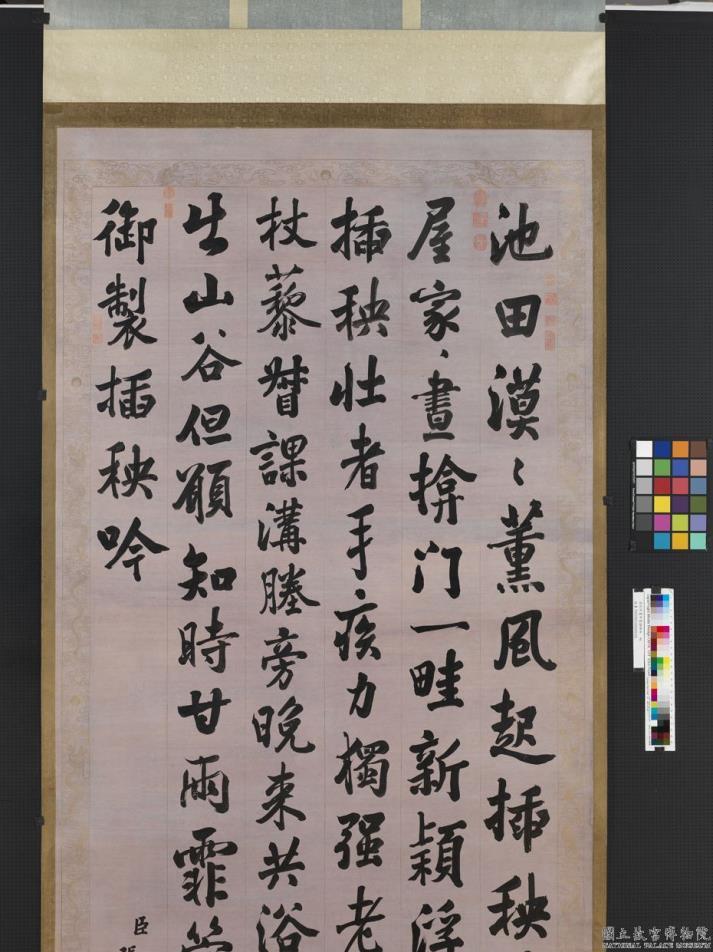 池田漠〻薰風起揷秧
屋家〻晝揜门一畦新穎浮
揷秧壮者手疾力獨强老
杖藜督課溝塍旁晚来共浴
出山谷但願知時甘雨霏
御製揷秧吟
臣
國立故宮博物院
NATIONAL PALACE MUSEUM